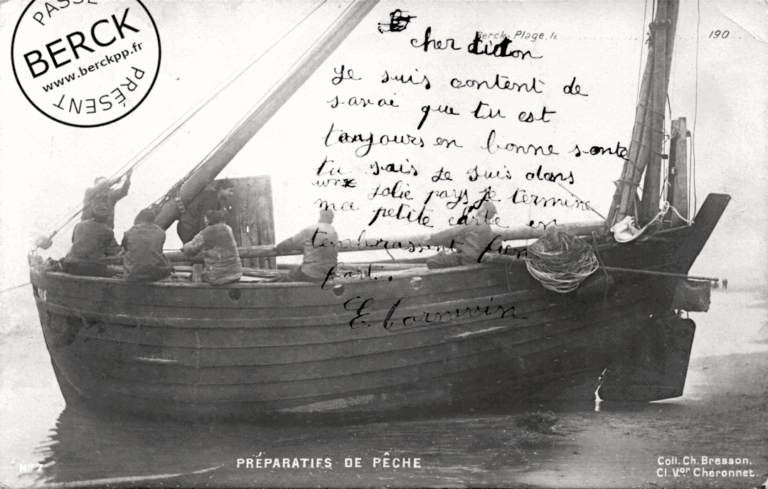 PASSÉ
BERCK
www.berckpp.fr
PRÉSENT
Berck-Plage, le
190
cher didon
Je suis content de
savoi que tu est
toujours en bonne sante
tu sais je suis dans
une jolie pays, je termine
ma petite carte en
tembrassant
part.
E.
N° 7
PRÉPARATIFS DE PÊCHE
Coll. Ch. Bresson.
Cl. Vor Chéronnet.